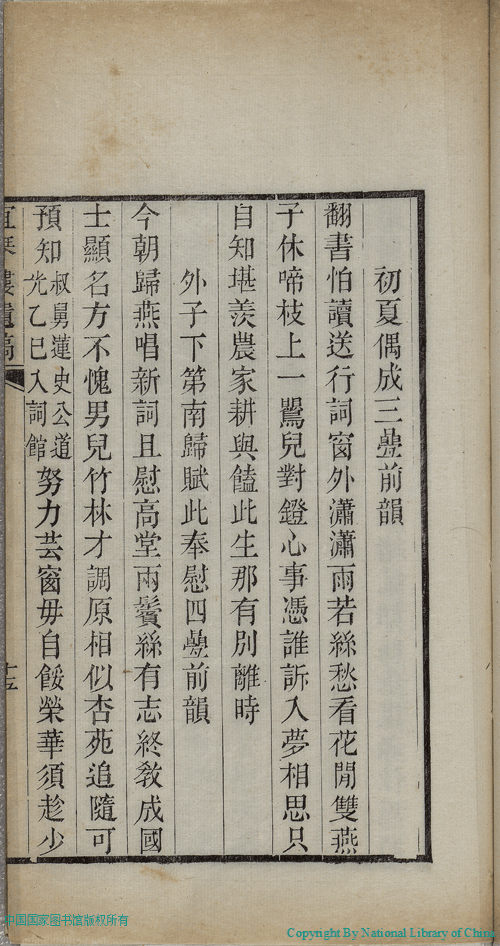 初夏偶成三疊前韻
翻書怕讀送行詞窗外瀟瀟雨若絲愁看花閒雙燕
子休啼枝上一鸎兒對鐙心事憑誰訴入夢相思只
自知堪羨農家耕與饁此生那有別離時
外子下第南歸賦此奉慰四疊前韻
今朝歸燕唱新詞且慰高堂兩鬢絲有志終教成國
士顯名方不愧男兒竹林才調原相似杏苑追隨可
預知叔舅蓮史公道光乙巳入詞館努力芸窗毋自餒榮華須趁少
十五
中国国家图书馆版权所有
Copyright By National Library of China